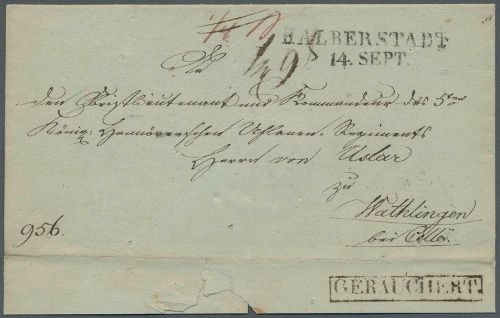 HALBERSTADT
14. SEPT.
An
den Obristlieutenant und Kommandeur des 5ten
König: Hannöverschen Uhlanen-Regiments
Herrn von Uslar
zu
Wathlingen
bei Celle.
956.
GERÄUCHERT.